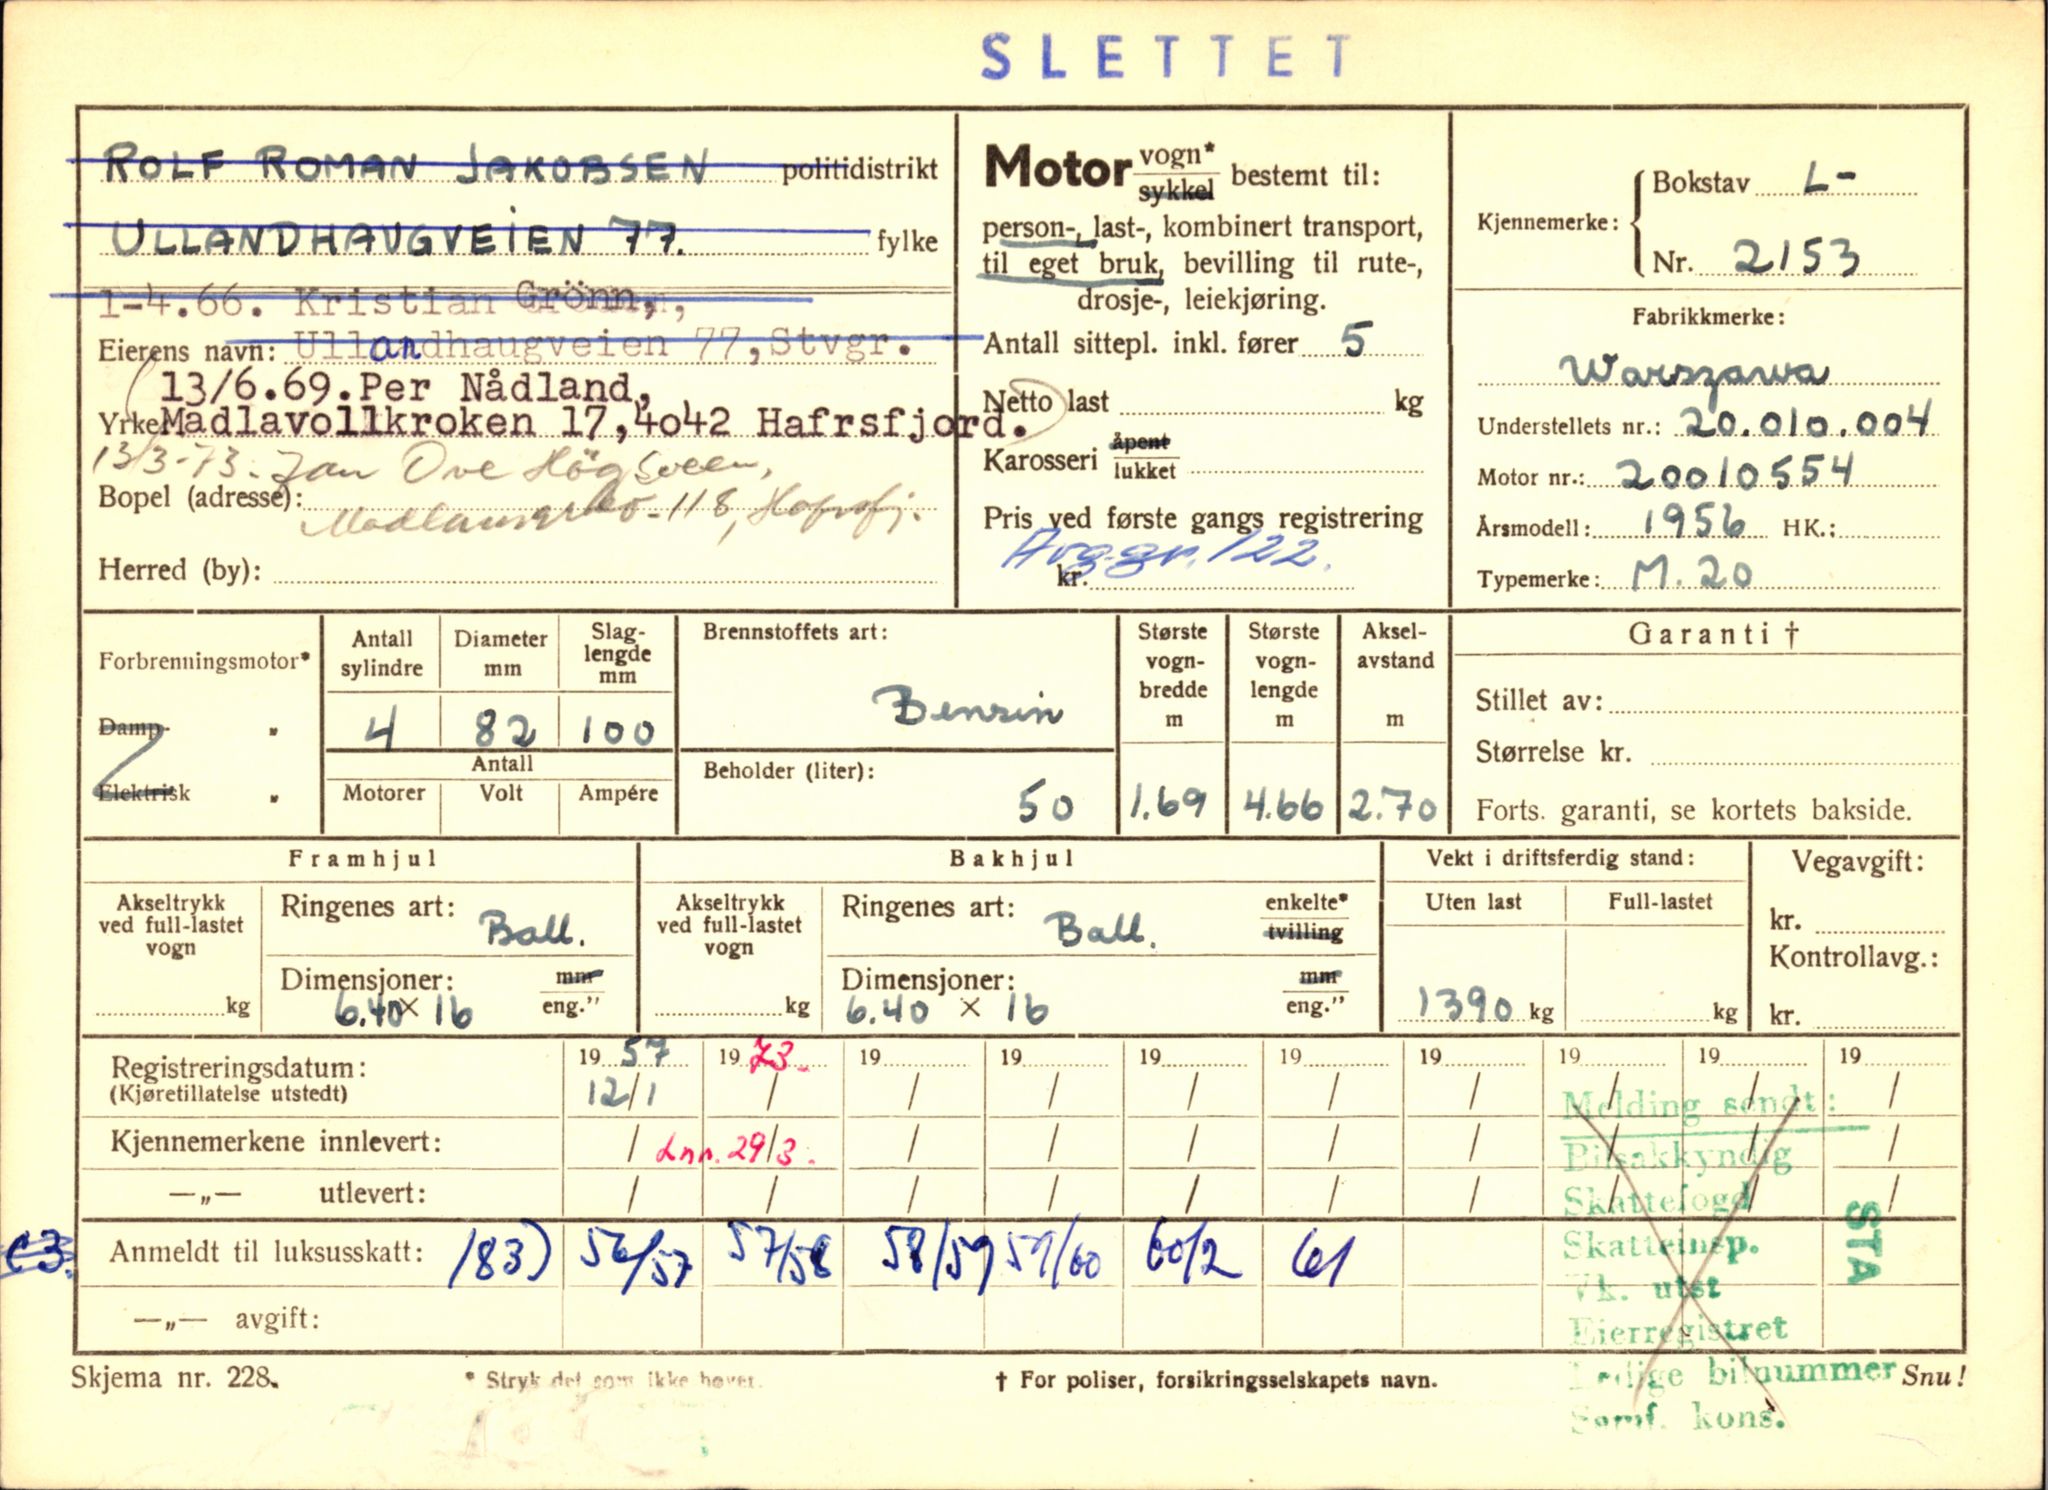 SLETTET
ROLF ROMAN JAKOBSEN politidistrikt
ULLANDHAUGVEIEN 77. fylke
1-4.66. Kristian Grönn,
Eierens navn: Ullandhaugveien 77, Stvgr.
13/6.69. Per Nådland,
Yrke Madlavollkroken 17, 4042 Hafrsfjord.
13/3-73. Jan Ove Högsveen,
Bopel (adresse):
118, Hafrsfj.
Herred (by):
Motor vogn* sykkel bestemt til:
person-, last-, kombinert transport,
til eget bruk, bevilling til rute-,
drosje-, leiekjøring.
Antall sittepl. inkl. fører 5
Netto last kg
Karosseri åpent lukket
Pris ved første gangs registrering
Avg.gr. 122.
kr.
Kjennemerke: Bokstav L-
Nr. 2153
Fabrikkmerke:
Warszawa
Understellets nr.: 20.010.004
Motor nr.: 20010554
Årsmodell: 1956 HK.:
Typemerke: M. 20
Forbrenningsmotor*
Damp- „
Elektrisk „
Antall sylindre
4
Diameter mm
82
Slag-
lengde
mm
100
Antall
Motorer Volt Ampére
Brennstoffets art:
Bensin
Beholder (liter):
50
Største
vogn-
bredde
m
1.69
Største
vogn-
lengde
m
4.66
Aksel-
avstand
m
2.70
Garanti †
Stillet av:
Størrelse kr.
Forts. garanti, se kortets bakside.
Framhjul
Akseltrykk
ved full-lastet
vogn
kg
Ringenes art: Ball.
Dimensjoner: mm
6.40 x 16 eng.”
Bakhjul
Akseltrykk
ved full-lastet
vogn
kg
Ringenes art: Ball. enkelte* tvilling
Dimensjoner: mm
6.40 x 16 eng.”
Vekt i driftsferdig stand:
Uten last Full-lastet
1390 kg kg
Vegavgift:
kr.
Kontrollavg.:
kr.
Registreringsdatum: 19 57 19 73. 19 19 19 19 19 19 19 19
(Kjøretillatelse utstedt) 12/1 / / / / / / / / /
Kjennemerkene innlevert: / Inn. 29/3. / / / / / / / /
—„— utlevert: / / / / / / / / / /
c3. Anmeldt til luksusskatt: 183) 56/57 57/58 58/59 59/60 60/2 61
—„— avgift:
Melding sendt:
Bilsakkyndig
Skattefogd
Skatteinsp.
Vk. utst
Eierregistret
Ledige bilnummer
Samf. kons.
STA
Skjema nr. 228. * Stryk det som ikke høver. † For poliser, forsikringsselskapets navn. Snu!